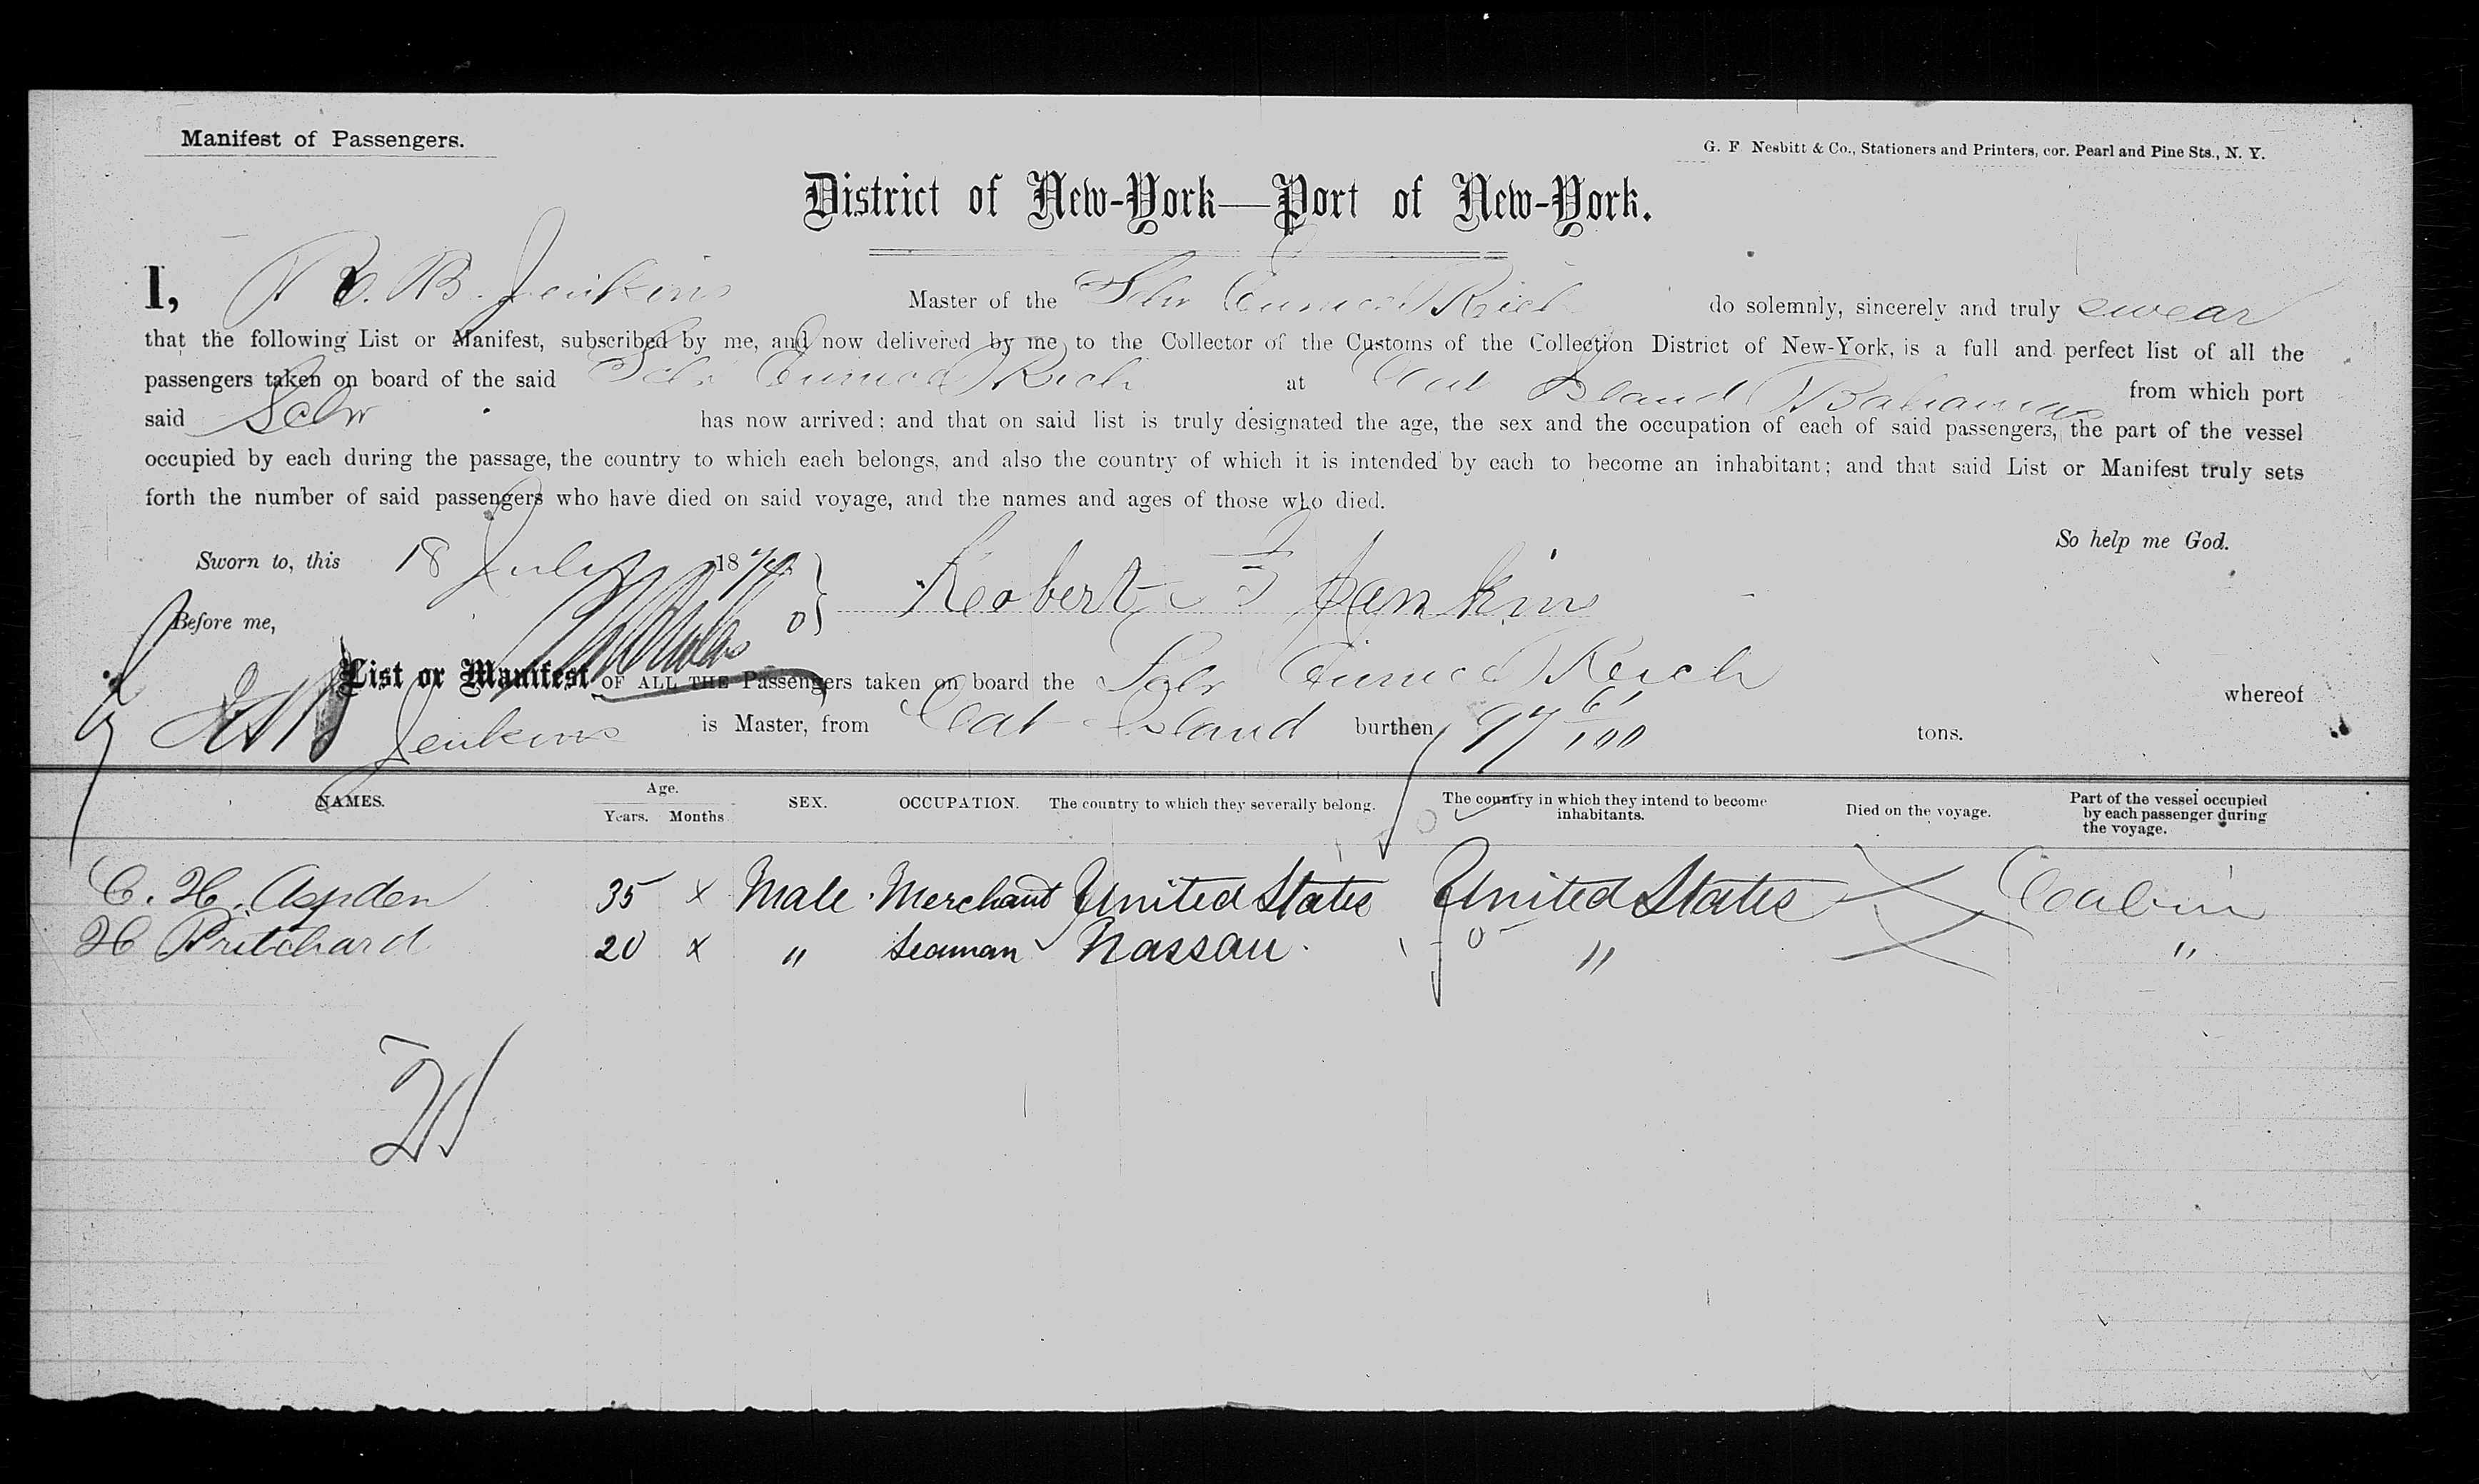 Manifest of Passengers.
G. F. Nesbitt & Co., Stationers and Printers, cor. Pearl and Pine Sts., N. Y.
District of New-York—Port of New-York.
I, R. B. Jenkins Master of the Schr Eunice Rich do solemnly, sincerely and truly swear
that the following List or Manifest, subscribed by me, and now delivered by me to the Collector of the Customs of the Collection District of New-York, is a full and perfect list of all the
passengers taken on board of the said Schr Eunice Rich at Cat Island Bahamas from which port
said Schr has now arrived; and that on said list is truly designated the age, the sex and the occupation of each of said passengers, the part of the vessel
occupied by each during the passage, the country to which each belongs, and also the country of which it is intended by each to become an inhabitant; and that said List or Manifest truly sets
forth the number of said passengers who have died on said voyage, and the names and ages of those who died.
So help me God.
Sworn to, this 18 July 187
Robert B Jankins
Before me,
List or Manifest OF ALL THE Passengers taken on board the Schr Eunice Rich whereof
Jenkins is Master, from Cat Island burthen 97 61/100 tons.
NAMES. Age. Years. Months SEX. OCCUPATION. The country to which they severally belong. The country in which they intend to become inhabitants. Died on the voyage. Part of the vessel occupied by each passenger during the voyage.
C. H. Aspden 35 x Male Merchant United States United States Cabin
H Pritchard 20 x " Seaman Nassau " "